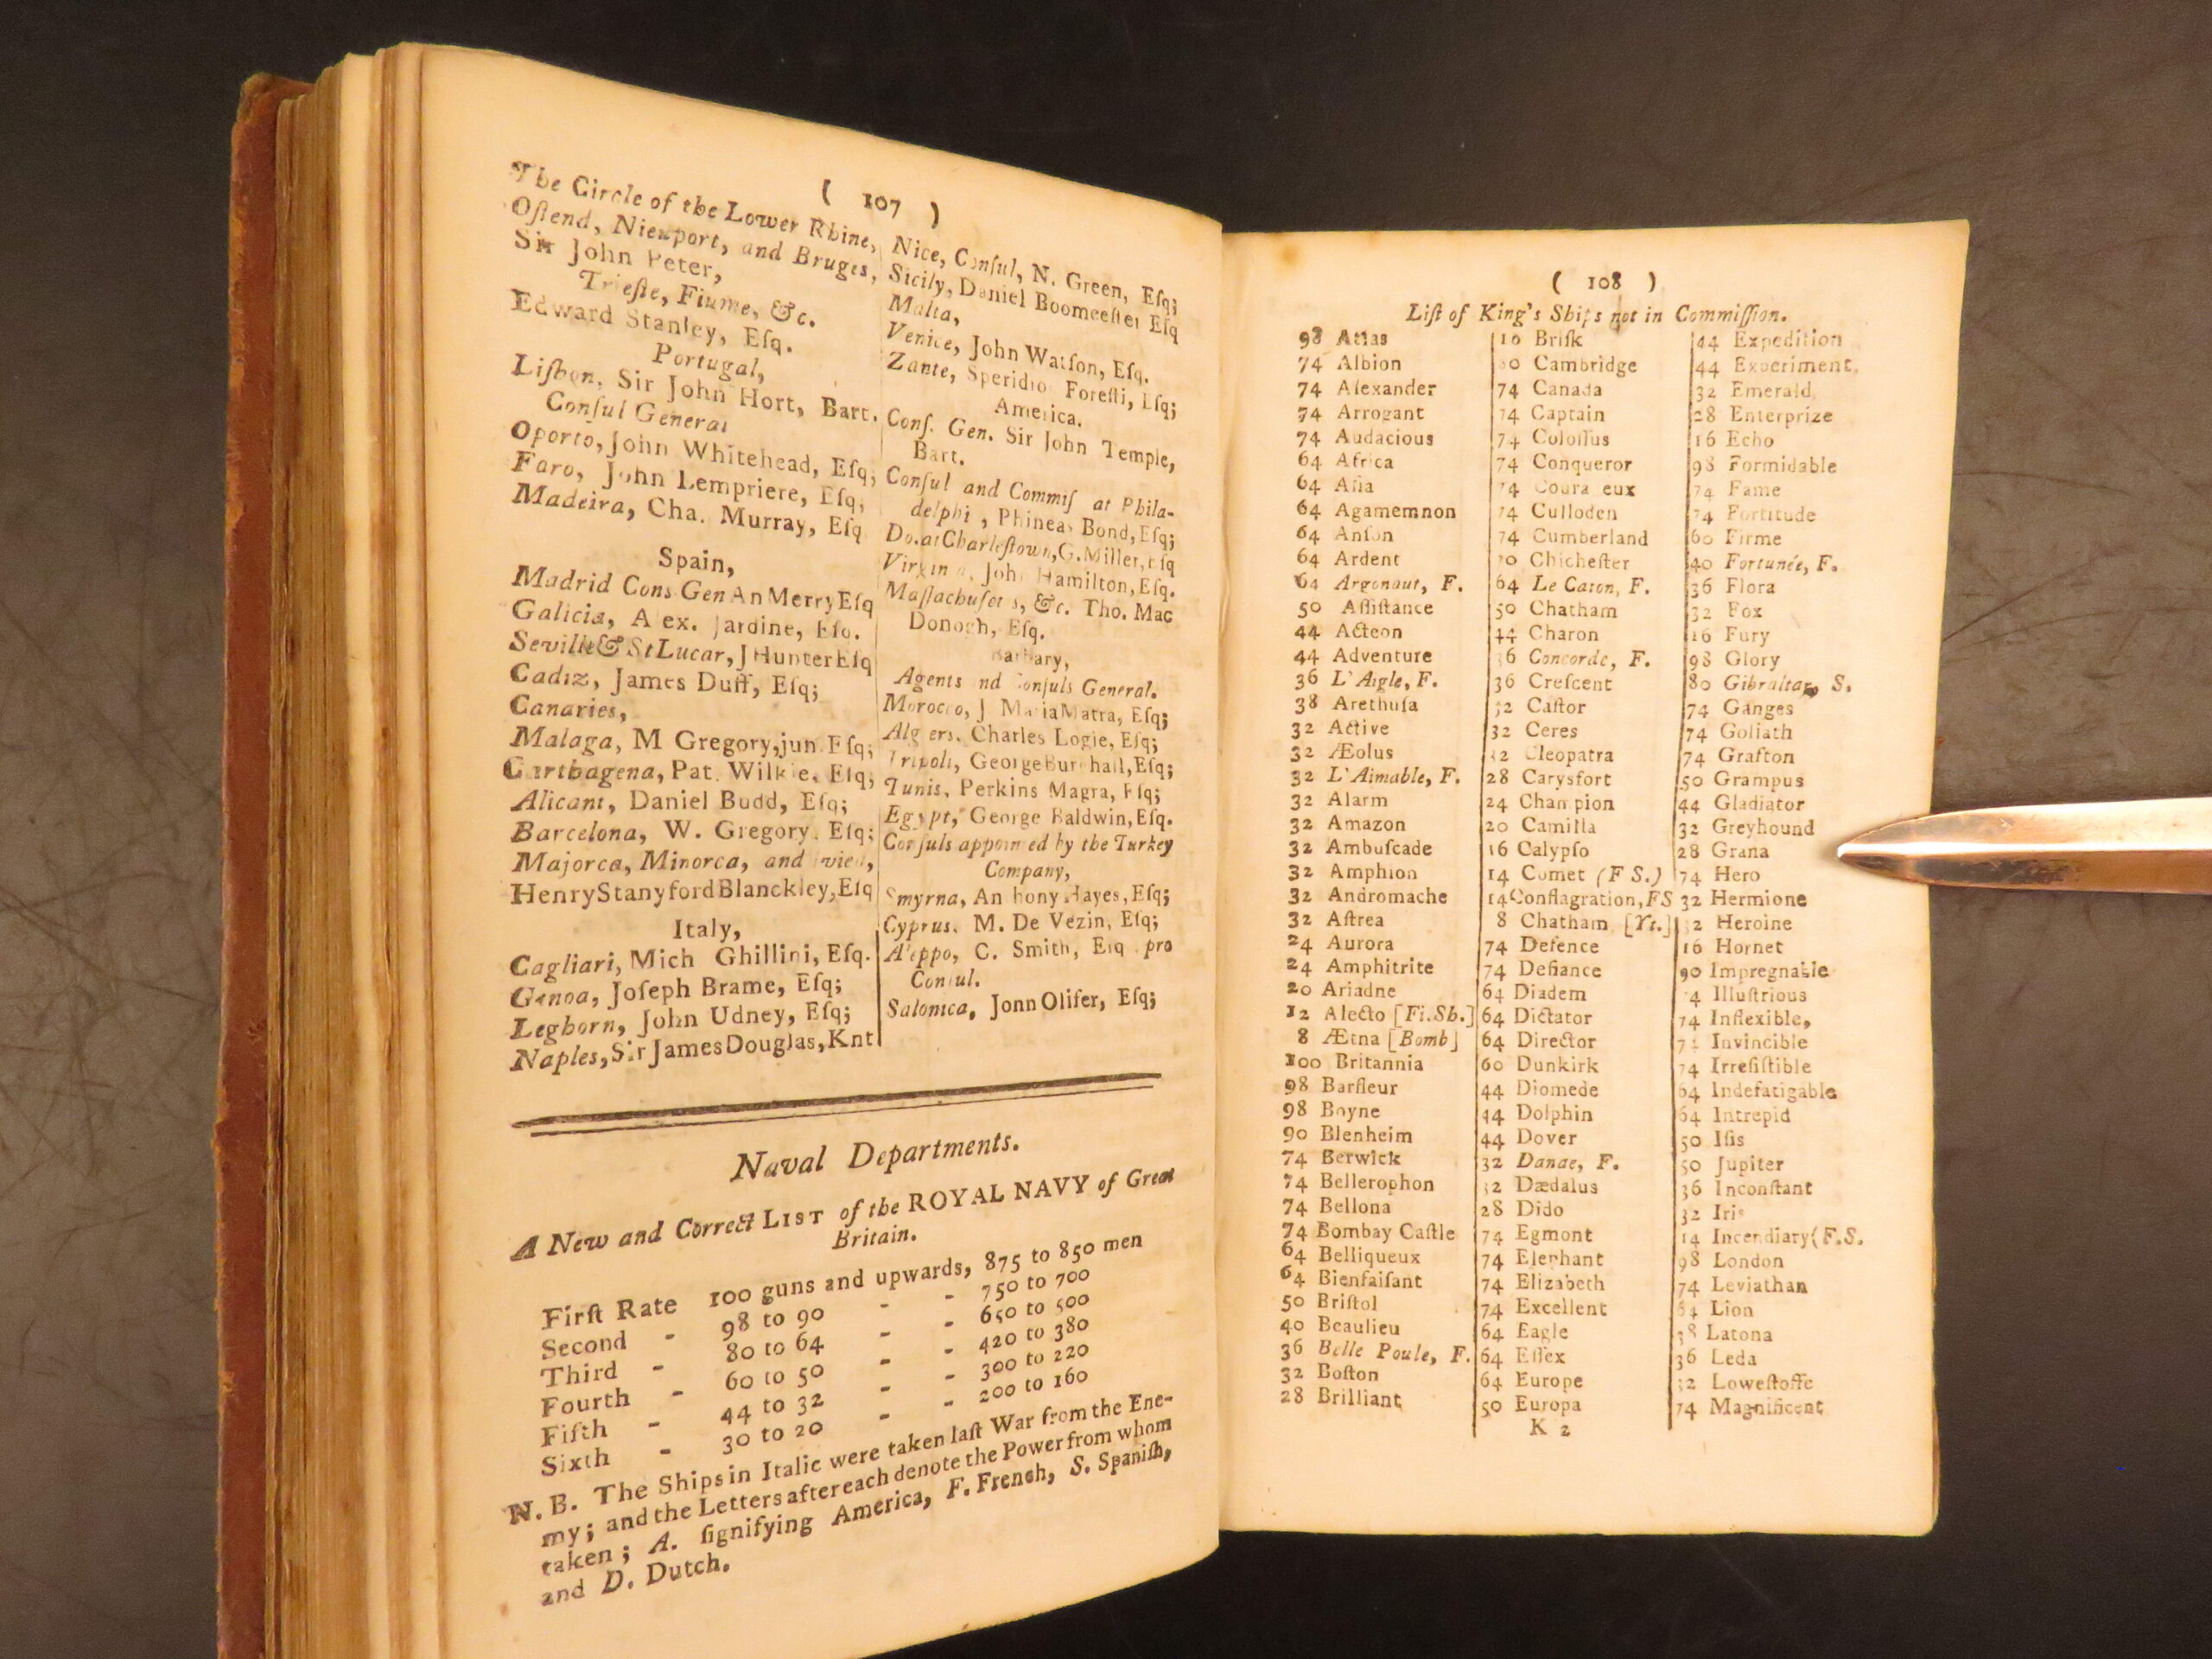 ( 107 )
The Circle of the Lower Rhine,
Oſtend, Nieuport, and Bruges,
Sir John Peter,
Trieſte, Fiume, &c.
Edward Stanley, Eſq.
Portugal,
Liſbon, Sir John Hort, Bart.
Conſul General
Oporto, John Whitehead, Eſq;
Faro, John Lempriere, Eſq;
Madeira, Cha. Murray, Eſq
Spain,
Madrid Cons Gen An Merry Eſq
Galicia, Alex. Jardine, Eſq.
Seville & St Lucar, J Hunter Eſq
Cadiz, James Duff, Eſq;
Canaries,
Malaga, M Gregory, jun. Eſq;
Carthagena, Pat. Wilkie, Eſq;
Alicant, Daniel Budd, Eſq;
Barcelona, W. Gregory. Eſq;
Majorca, Minorca, and
Henry Stanyford Blanckley, Eſq
Italy,
Cagliari, Mich Ghillini, Eſq.
Genoa, Joſeph Brame, Eſq;
Leghorn, John Udney, Eſq;
Naples, Sir James Douglas, Knt
Nice, Conſul, N. Green, Eſq;
Sicily, Daniel Boomeeſter Eſq
Malta,
Venice, John Watſon, Eſq.
Zante, Speridio Foreſti, Eſq;
America.
Conſ. Gen. Sir John Temple,
Bart.
Conſul and Commiſ at Phila-
delphi, Phineas Bond, Eſq;
Do. at Charleſtown, G. Miller, Eſq
Virginia, John Hamilton, Eſq.
Maſſachuſets, &c. Tho. Mac
Donogh, Eſq.
Barbary,
Agents and Conſuls General.
Morocco, J. Maria Matra, Eſq;
Algiers. Charles Logie, Eſq;
Tripoli, George Burchall, Eſq;
Tunis, Perkins Magra, Eſq;
Egypt, George Baldwin, Eſq.
Conſuls appointed by the Turkey
Company,
Smyrna, Anthony Hayes, Eſq;
Cyprus. M. De Vezin, Eſq;
Aleppo, C. Smith, Eſq. pro
Conſul.
Salonica, John Olifer, Eſq;
Naval Departments.
A New and Correct LIST of the ROYAL NAVY of Great
Britain.
Firſt Rate 100 guns and upwards, 875 to 850 men
Second - 98 to 90 - - 750 to 700
Third - 80 to 64 - - 650 to 500
Fourth - 60 to 50 - - 420 to 380
Fifth - 44 to 32 - - 300 to 220
Sixth - 30 to 20 - - 200 to 160
N. B. The Ships in Italic were taken laſt War from the Ene-
my; and the Letters after each denote the Power from whom
taken; A. ſignifying America, F. French, S. Spaniſh,
and D. Dutch.
( 108 )
Liſt of King's Ships not in Commiſſion.
98 Atlas
74 Albion
74 Alexander
74 Arrogant
74 Audacious
64 Africa
64 Aſia
64 Agamemnon
64 Anſon
64 Ardent
64 Argonaut, F.
50 Aſſiſtance
44 Acteon
44 Adventure
36 L'Aigle, F.
38 Arethuſa
32 Active
32 Æolus
32 L'Aimable, F.
32 Alarm
32 Amazon
32 Ambuſcade
32 Amphion
32 Andromache
32 Aſtrea
24 Aurora
24 Amphitrite
20 Ariadne
12 Alecto [Fi.Sh.]
8 Ætna [Bomb]
100 Britannia
98 Barfleur
98 Boyne
90 Blenheim
74 Berwick
74 Bellerophon
74 Bellona
74 Bombay Caſtle
64 Belliqueux
64 Bienfaiſant
50 Briſtol
40 Beaulieu
36 Belle Poule, F.
32 Boſton
28 Brilliant
16 Briſk
80 Cambridge
74 Canada
74 Captain
74 Coloſſus
74 Conqueror
74 Coura eux
74 Culloden
74 Cumberland
70 Chicheſter
64 Le Caton, F.
50 Chatham
44 Charon
36 Concorde, F.
36 Creſcent
32 Caſtor
32 Ceres
32 Cleopatra
28 Carysfort
24 Champion
20 Camilla
16 Calypſo
14 Comet (F S.)
14 Conflagration, FS
8 Chatham [Yt.]
74 Defence
74 Defiance
64 Diadem
64 Dictator
64 Director
60 Dunkirk
44 Diomede
44 Dolphin
44 Dover
32 Danae, F.
32 Dædalus
28 Dido
74 Egmont
74 Elephant
74 Elizabeth
74 Excellent
64 Eagle
64 Eſſex
64 Europe
50 Europa
K 2
44 Expedition
44 Experiment,
32 Emerald
28 Enterprize
16 Echo
98 Formidable
74 Fame
74 Fortitude
60 Firme
40 Fortunée, F.
36 Flora
32 Fox
16 Fury
98 Glory
80 Gibraltar, S.
74 Ganges
74 Goliath
74 Grafton
50 Grampus
44 Gladiator
32 Greyhound
28 Grana
74 Hero
32 Hermione
32 Heroine
16 Hornet
90 Impregnable
74 Illuſtrious
74 Inflexible,
74 Invincible
74 Irreſiſtible
64 Indefatigable
64 Intrepid
50 Iſis
50 Jupiter
36 Inconſtant
32 Iris
14 Incendiary (F.S.
98 London
74 Leviathan
64 Lion
38 Latona
36 Leda
32 Loweſtoffe
74 Magnificent